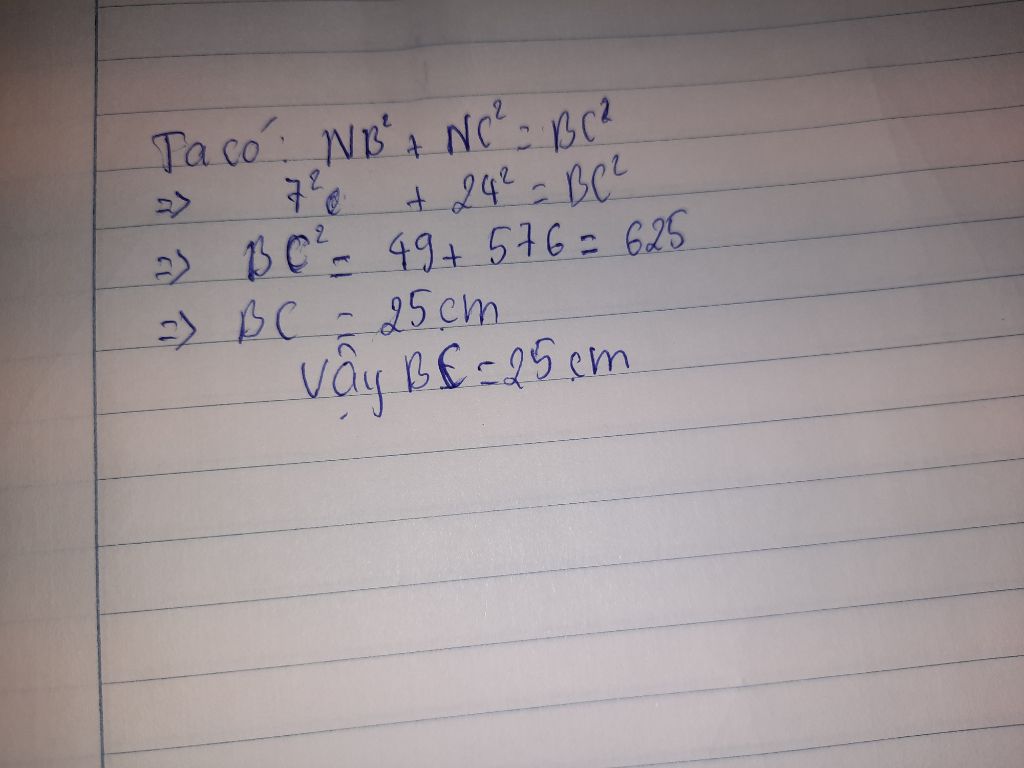 Ta có: NB² + NC² = BC²
=> 7² + 24² = BC²
=> BC² = 49 + 576 = 625
=> BC = 25 cm
Vậy BC = 25 cm